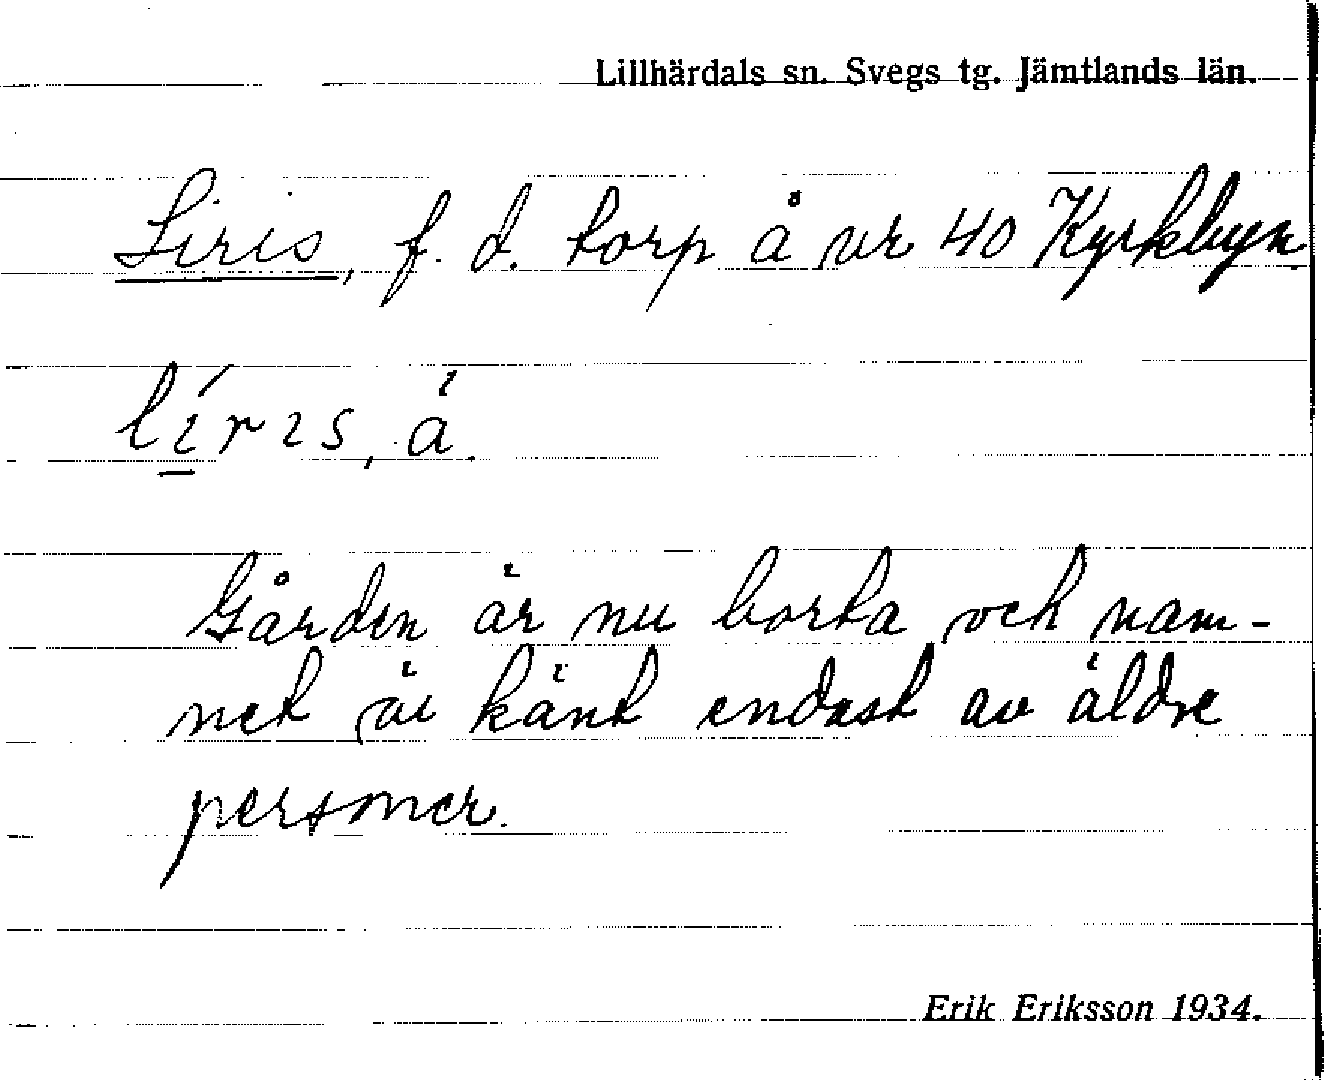 Lillhärdals sn. Svegs tg. Jämtlands län.
Liris, f. d. torp å nr 40 Kyrkbyn
lí̱rıs, á.
Gården är nu borta och nam-
net är känt endast av äldre
personer.
Erik Eriksson 1934.